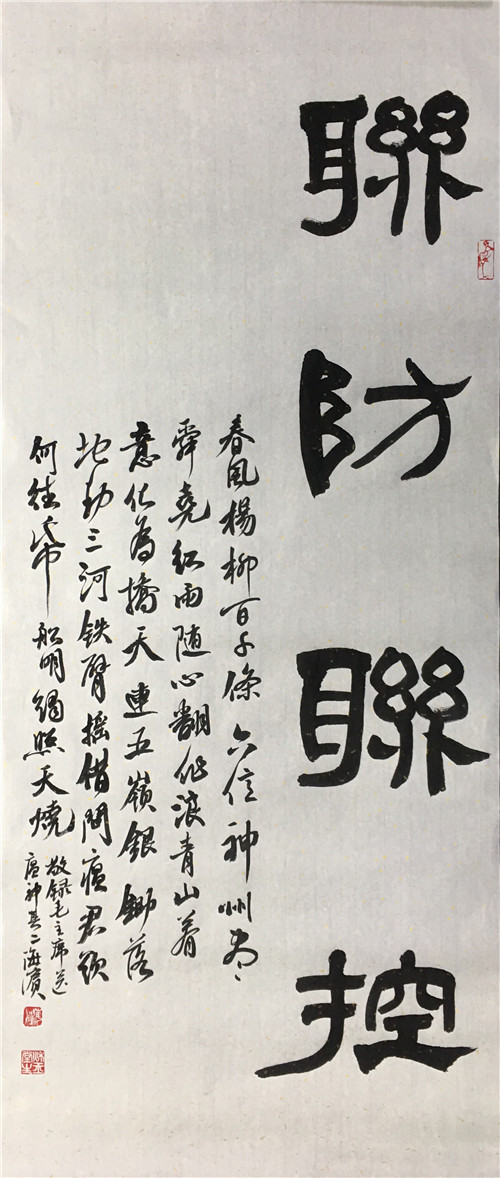 聯防聯控
春風楊柳百千條六億神州盡
舜堯紅雨随心翻作浪青山着
意化為橋天連五嶺銀鋤落
地動三河铁臂摇借問瘟君欲
何往紙船明燭照天燒
敬録毛主席送
瘟神其二海濱